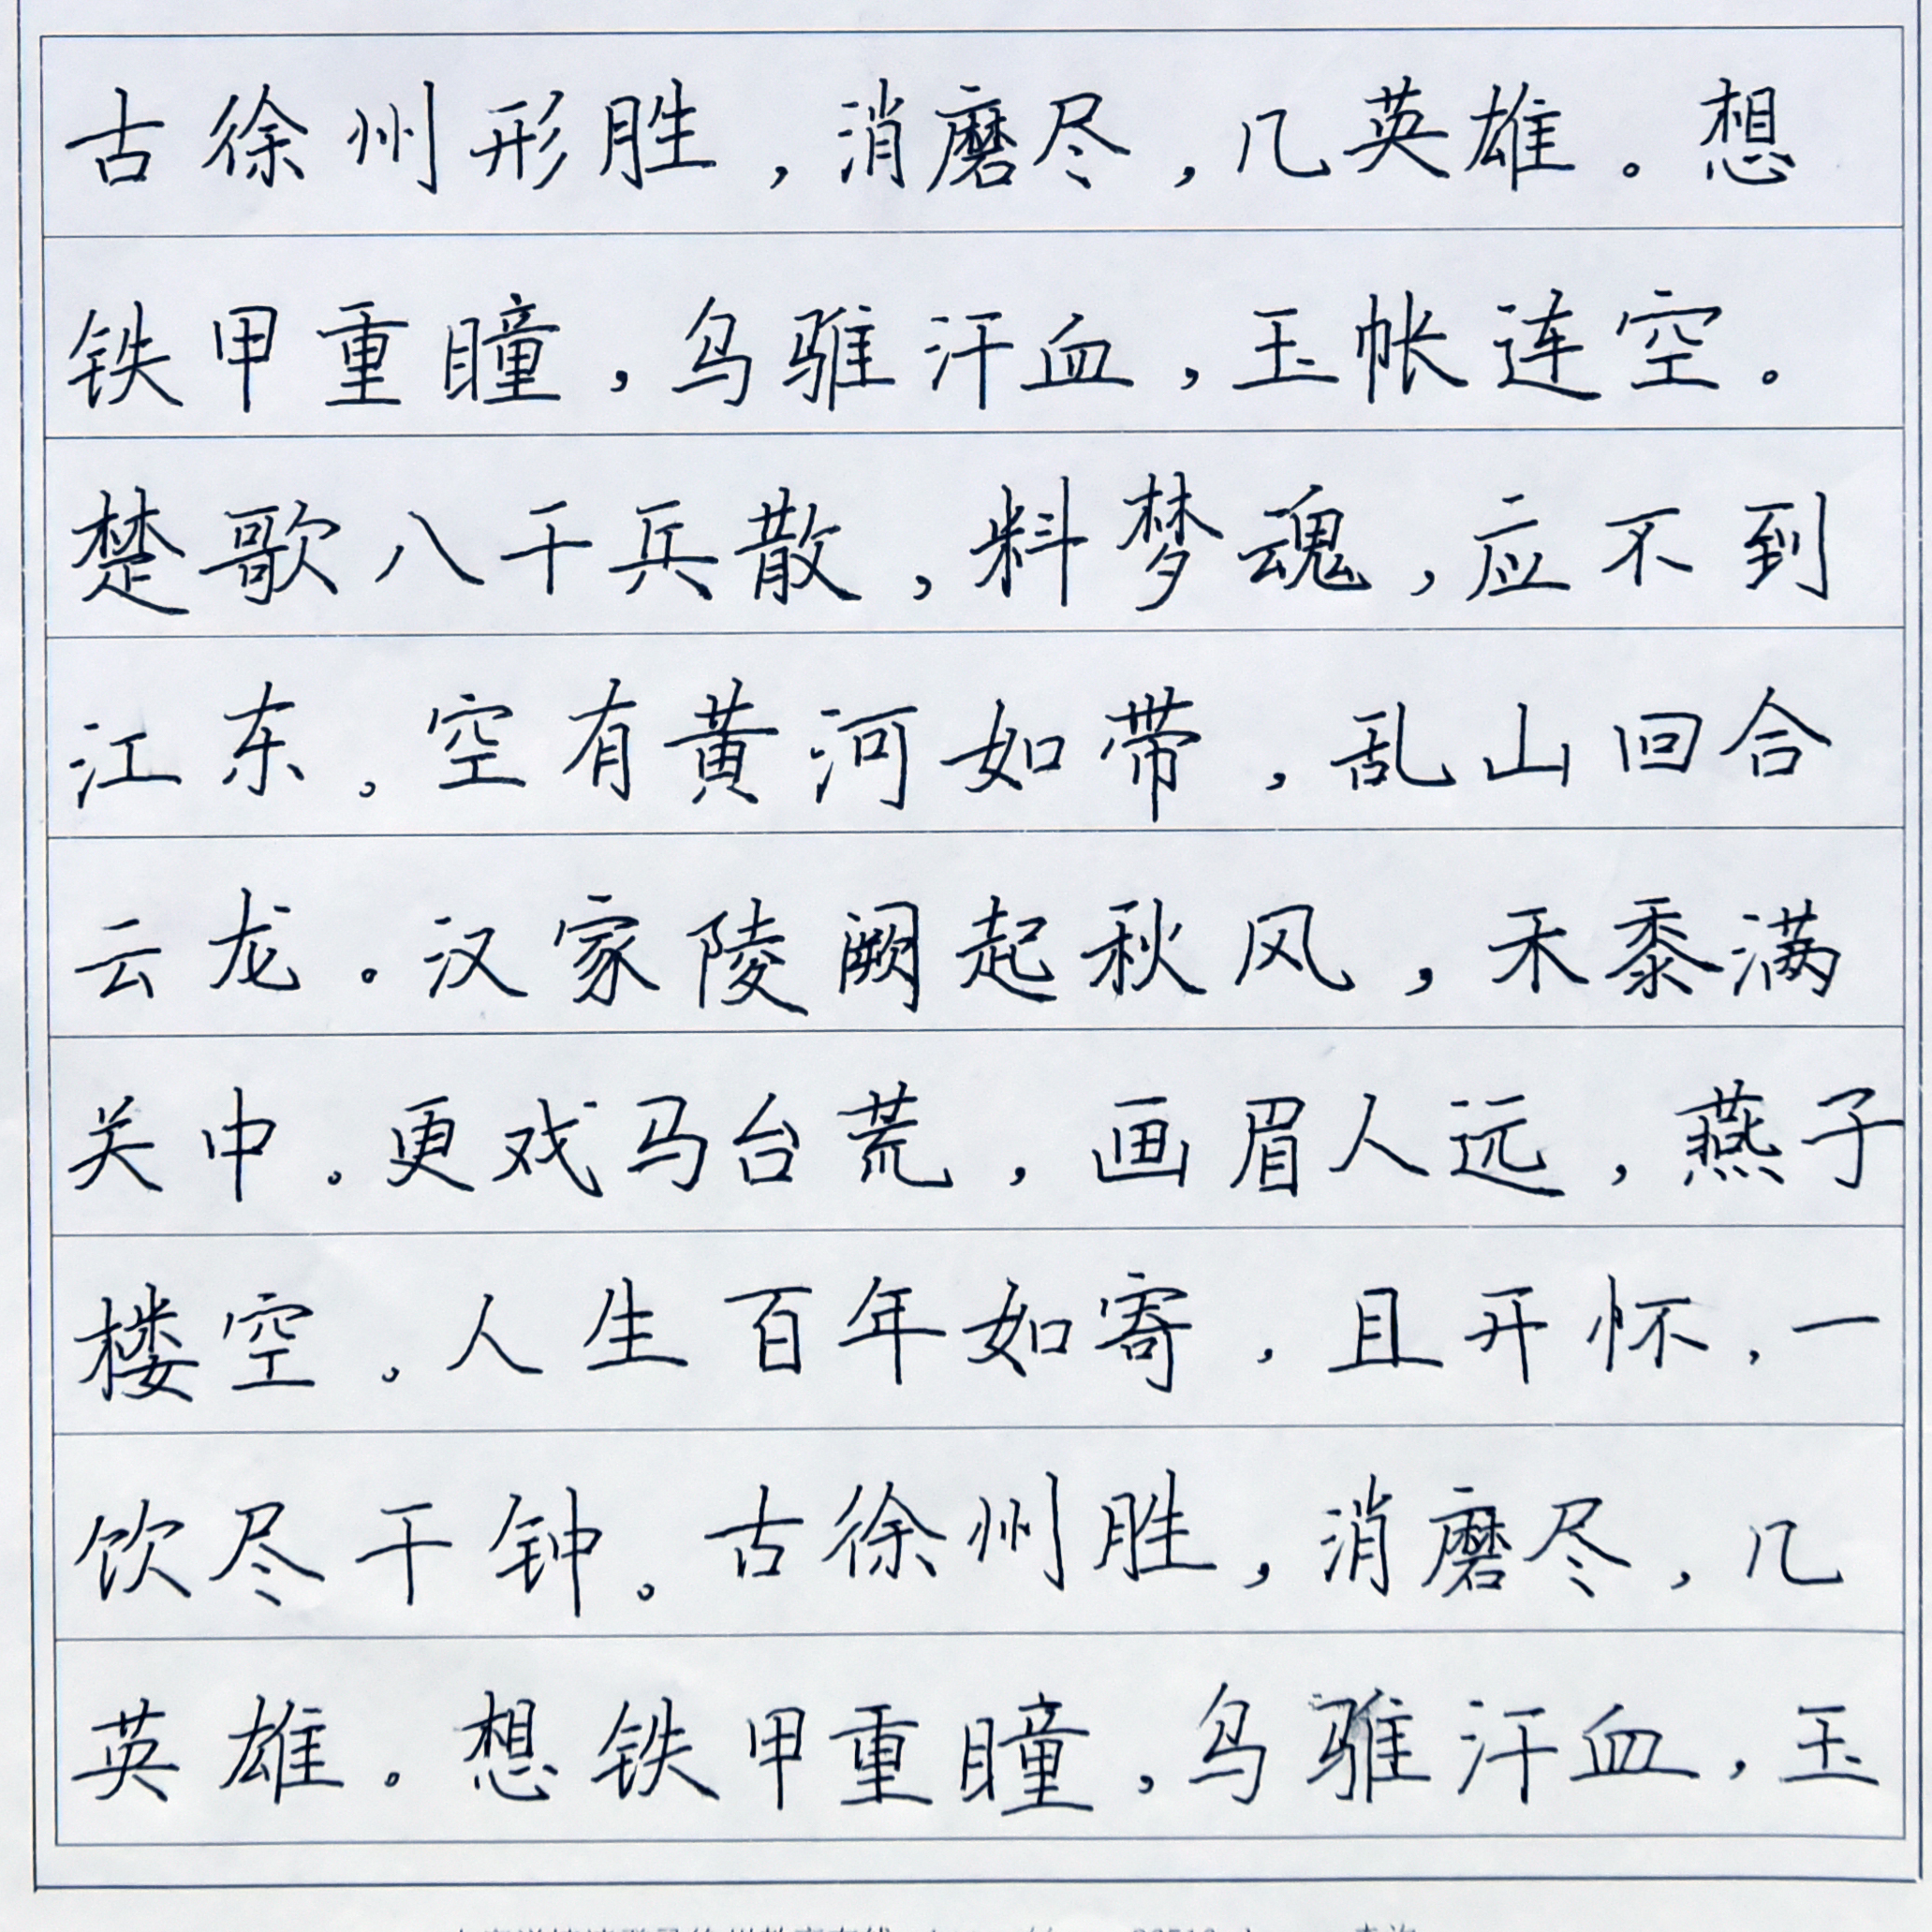 古徐州形胜，消磨尽，几英雄。想
铁甲重瞳，乌骓汗血，玉帐连空。
楚歌八千兵散，料梦魂，应不到
江东。空有黄河如带，乱山回合
云龙。汉家陵阙起秋风，禾黍满
关中。更戏马台荒，画眉人远，燕子
楼空。人生百年如寄，且开怀，一
饮尽千钟。古徐州胜，消磨尽，几
英雄。想铁甲重瞳，乌骓汗血，玉